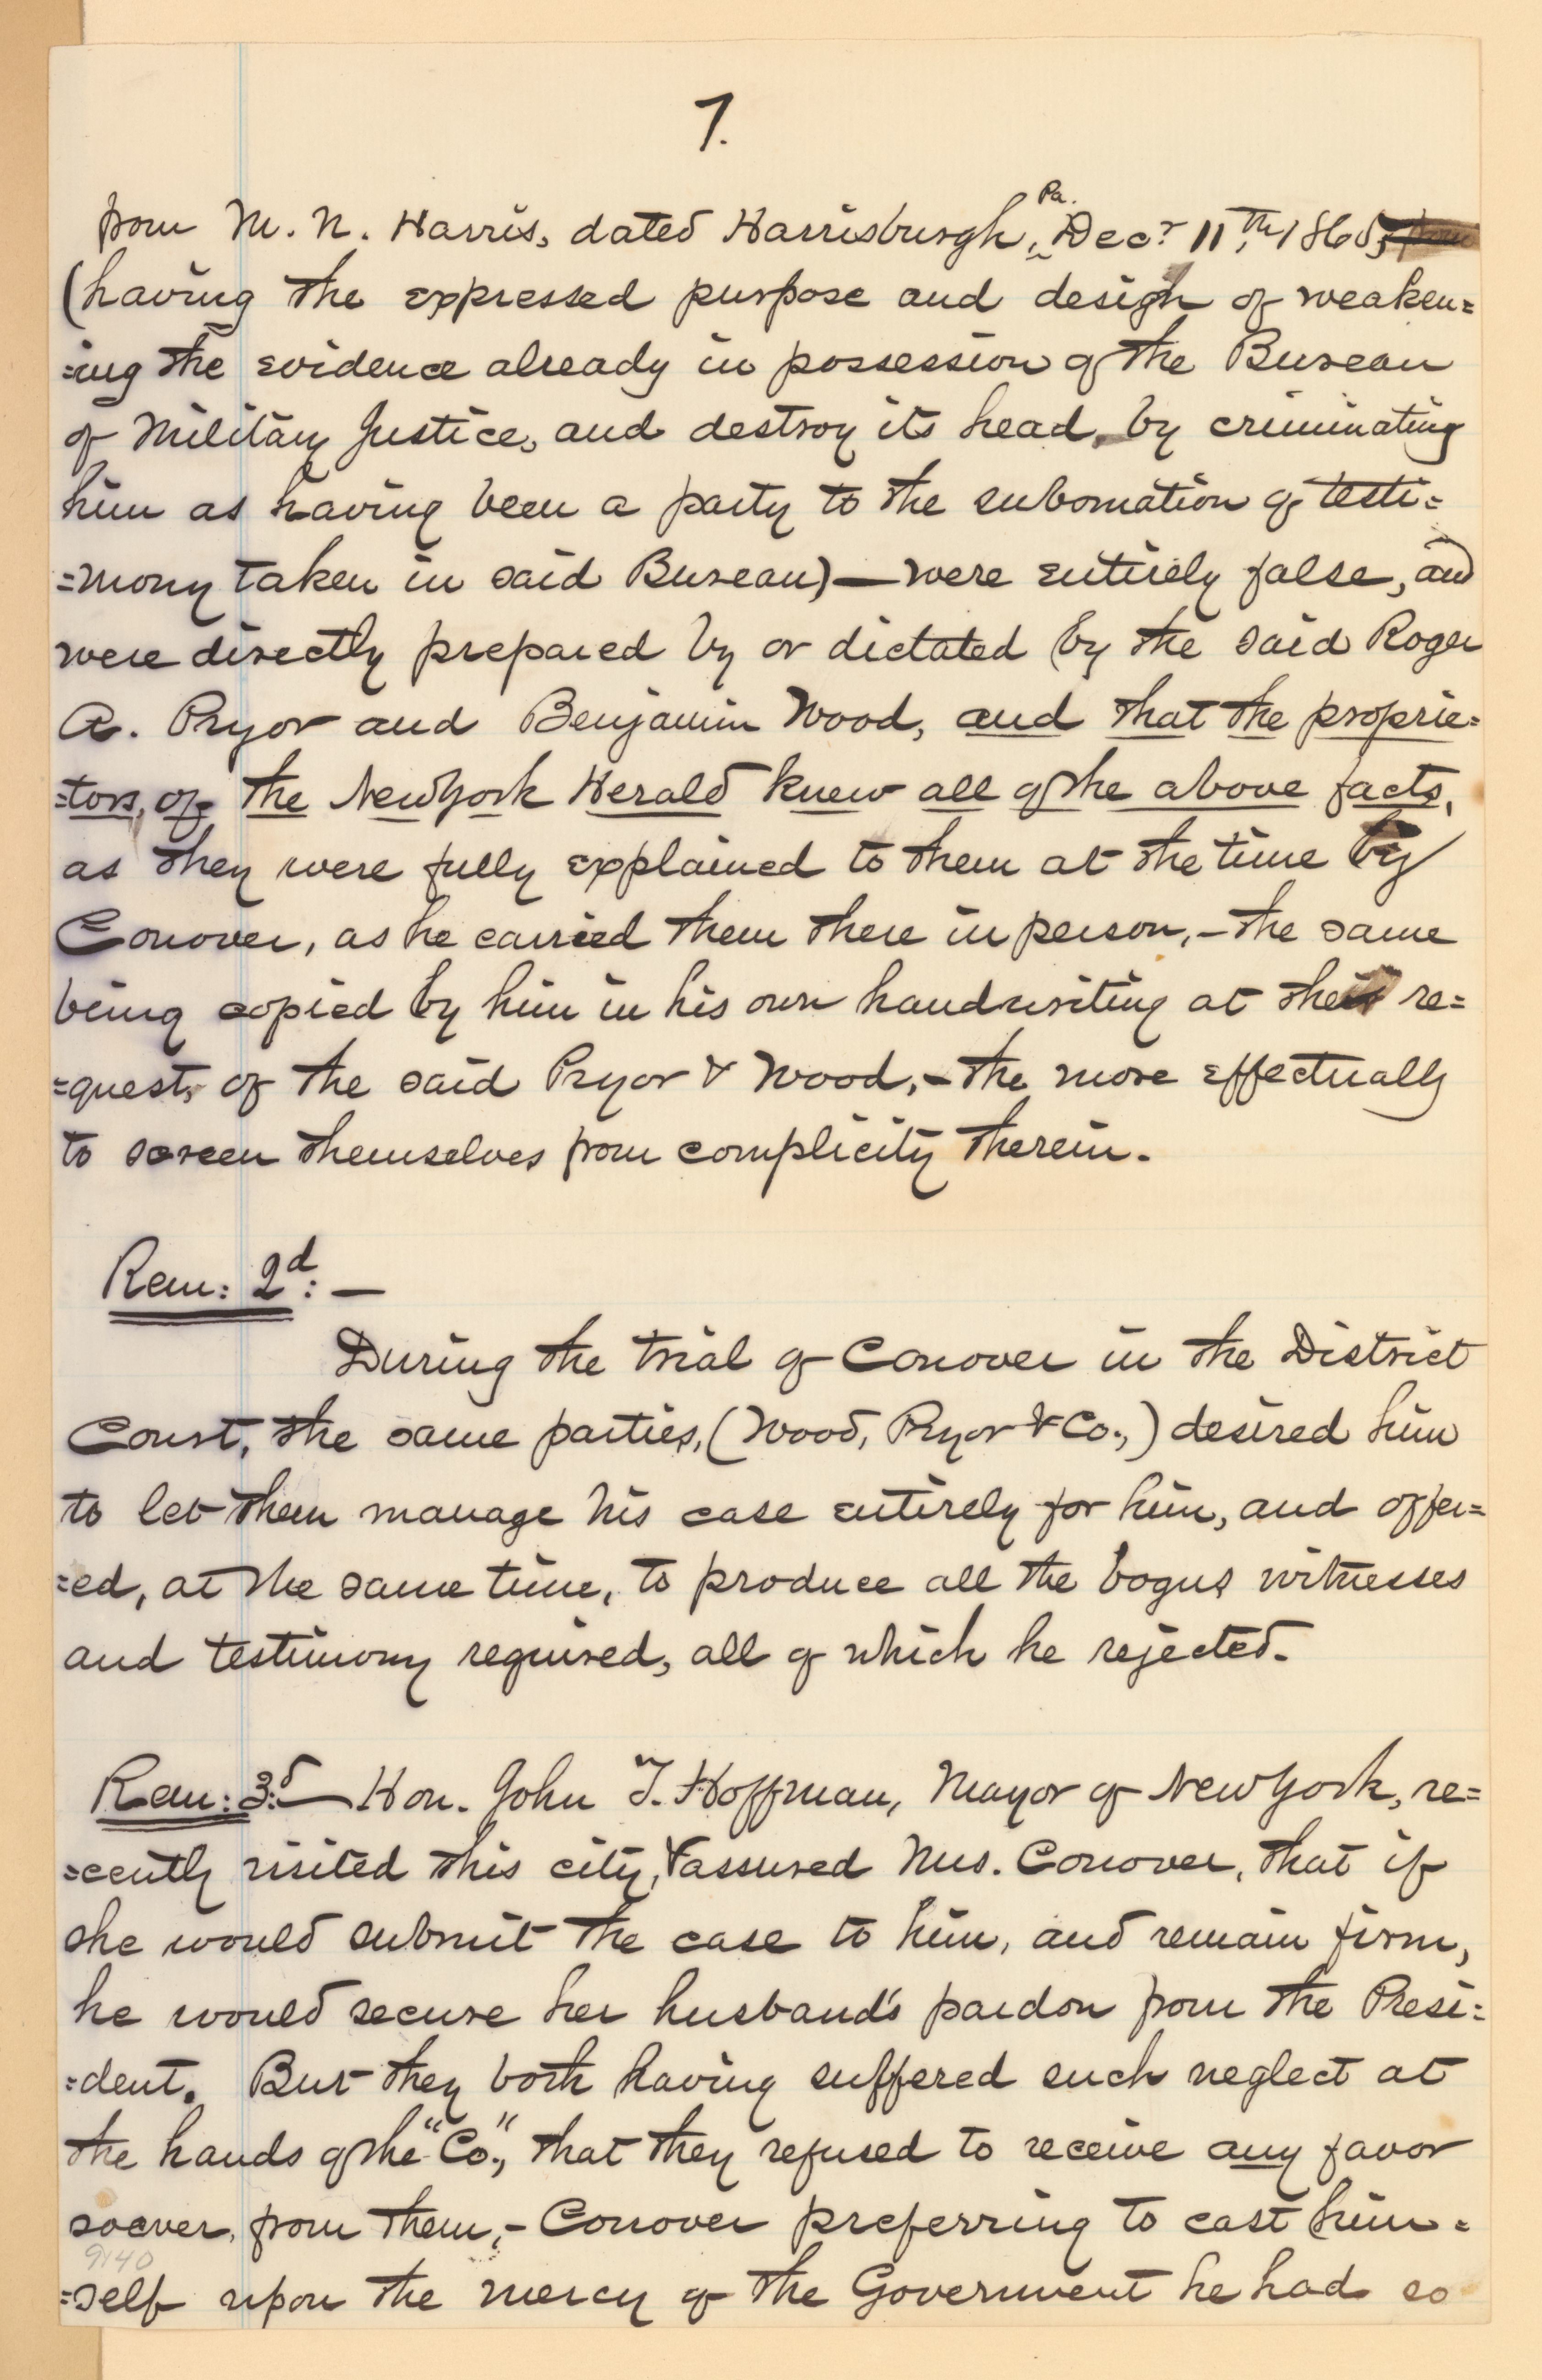 7.
from M. N. Harris, dated Harrisburgh, Pa. Decr 11th, 1865,
(having the expressed purpose and design of weaken=
=ing the evidence already in possession of the Bureau
of Military Justice, and destroy its head, by criminating
him as having been a party to the subornation of testi=
=mony taken in said Bureau)—were entirely false, and
were directly prepared by or dictated by the said Roger
A. Pryor and Benjamin Wood, and that the proprie=
=tors, of the New York Herald knew all of the above facts,
as they were fully explained to them at the time by
Conover, as he carried them there in person,-the same
being copied by him in his own handwriting at the re=
=quest, of the said Pryor & Wood,-the more effectually
to screen themselves from complicity therein.
Rem: 2d: —
During the trial of Conover in the District
Court, the same parties, (Wood, Pryor & Co.,) desired him
to let them manage his case entirely for him, and offer=
=ed, at the same time, to produce all the bogus witnesses
and testimony required, all of which he rejected.
Rem: 3d:— Hon. John T. Hoffman, Mayor of New York, re=
=cently visited this city, & assured Mrs. Conover, that if
she would submit the case to him, and remain firm,
he would secure her husband's pardon from the Presi=
=dent. But they both having suffered such neglect at
the hands of the "Co.," that they refused to receive any favor
soever, from them,- Conover preferring to cast him=
9140
=self upon the mercy of the Government he had so